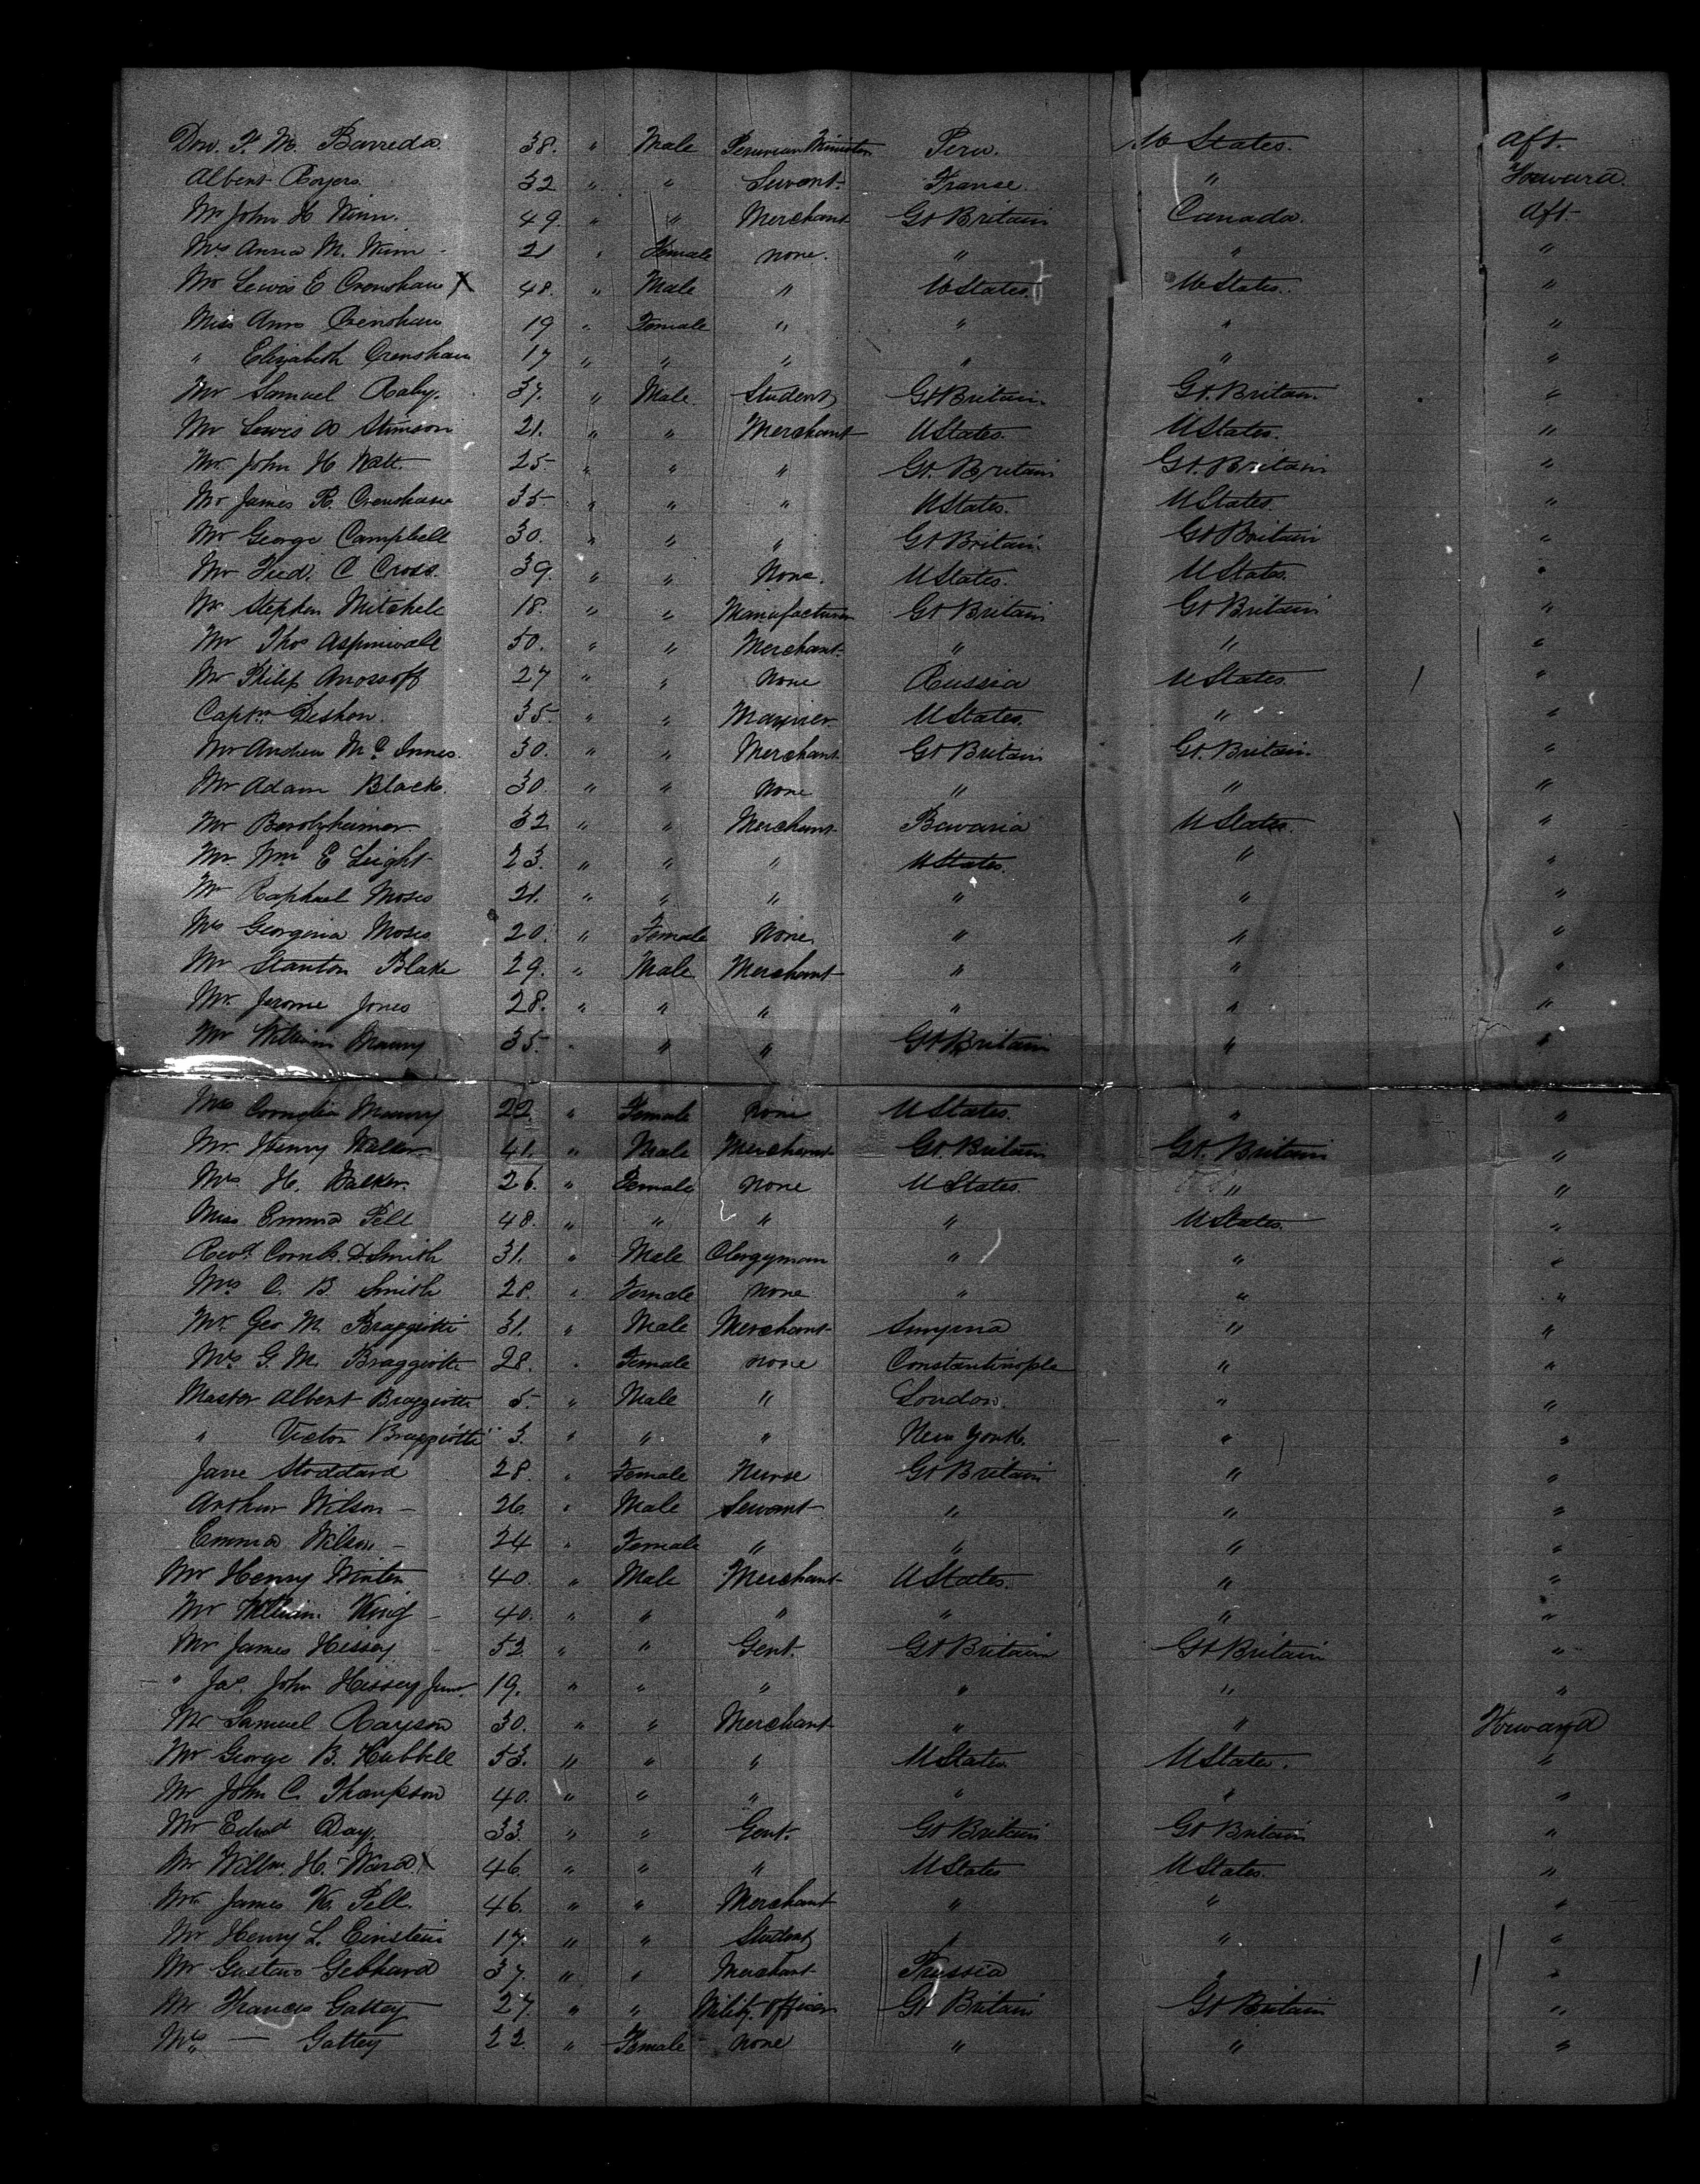 Don. F. M. Barreda. 38. " Male Peruvian Minister Peru. U States. Aft.
Albert Royers. 32 " " Servant. Franse. " Forward.
Mr John H Winn. 49. " " Merchant Gt Britain Canada. Aft
Mrs Anna M. Winn - 21 " Female none. " " "
Mr Lewis E Crenshaw X 48. " Male " U States. U States. "
Miss Ann Crenshaw 19 " Female " " " "
" Elizabeth Crenshaw 17 " " " " " "
Mr Samuel Raby. 37. " Male. Student Gt Britain. Gt. Britain. "
Mr Lewis Stimson 21. " " Merchant U States. U States. "
Mr. John H Watt. 25 " " " Gt. Britain Gt. Britain "
Mr James R. Crenshaw 35 " " " U States. U States. "
Mr George Campbell 30. " " " Gt Britain. Gt Britain "
Mr Fred. C Cross. 39. " " None. U States. U States. "
Mr Stephen Mitchell 18. " " Manufacturer Gt Britain Gt Britain "
Mr Thos Aspinwall 50. " " Merchant. " " "
Mr Philip Anossoff 27 " " None Russia U States. "
Captn Deshon. 35. " " Mariner U States. " "
Mr Andrew Mc Innes. 30. " " Merchant Gt Britain Gt. Britain. "
Mr Adam Black. 30. " " None " " "
Mr Berolzheimer 32 " " Merchant Bavaria U States. "
Mr. Wm E Leight 23. " " " U States. " "
Mr Raphael Moses 21. " " " " " "
Mrs Georgina Moses 20. " Female None " " "
Mr Stanton Blake 29. " Male Merchant " " "
Mr. Jerome Jones 28. " " " " " "
Mr William Maury 35. " " " Gt Britain " "
Mrs Cornelia Maury 22 " Female none U States. " "
Mr. Henry Walker. 41. " Male Merchant Gt. Britain Gt. Britain "
Mrs H. Walker. 26. " Female none U States. " "
Miss Emma Pell 48. " " " " U States. "
Revd. Cornls. D. Smith 31. " Male Clergyman " " "
Mrs C. B. Smith 28. " Female none " " "
Mr. Geo M. Braggiotti 31. " Male Merchant Smyrna " "
Mrs G. M. Braggiotti 28. " Female none Constantinople " "
Master Albert Braggiotti 5. " Male " London. " "
" Victor Braggiotti 3. " " " New York. " "
Jane Stoddard 28. " Female Nurse Gt Britain " "
Arthur Wilson - 26. " Male Servant " " "
Emma Wilson - 24 " Female " " " "
Mr Henry Winter 40. " Male Merchant U States. " "
Mr William King - 40. " " " " " "
Mr James Hissey - 52. " " Gent. Gt Britain Gt Britain "
" Jas. John Hissey Junr. 19. " " " " " "
Mr Samuel Rayson 30. " " Merchant " " Forward
Mr George B. Hubbell 53. " " " U States. U States. "
Mr John C. Thompson 40. " " " " " "
Mr Edwd Day. 33. " " Gent. Gt Britain Gt Britain "
Mr Willm. H. Ward. X 46. " " " U States U States. "
Mr James K. Pell. 46. " " Merchant " " "
Mr Henry L. Einstein 17. " " Student " " "
Mr Gustavo Gebhard 37. " " Merchant Prussia " "
Mr Francis Gattey 27. " " Mility. officer Gt Britain Gt Britain "
Mrs — Gattey 22. " Female none " " "